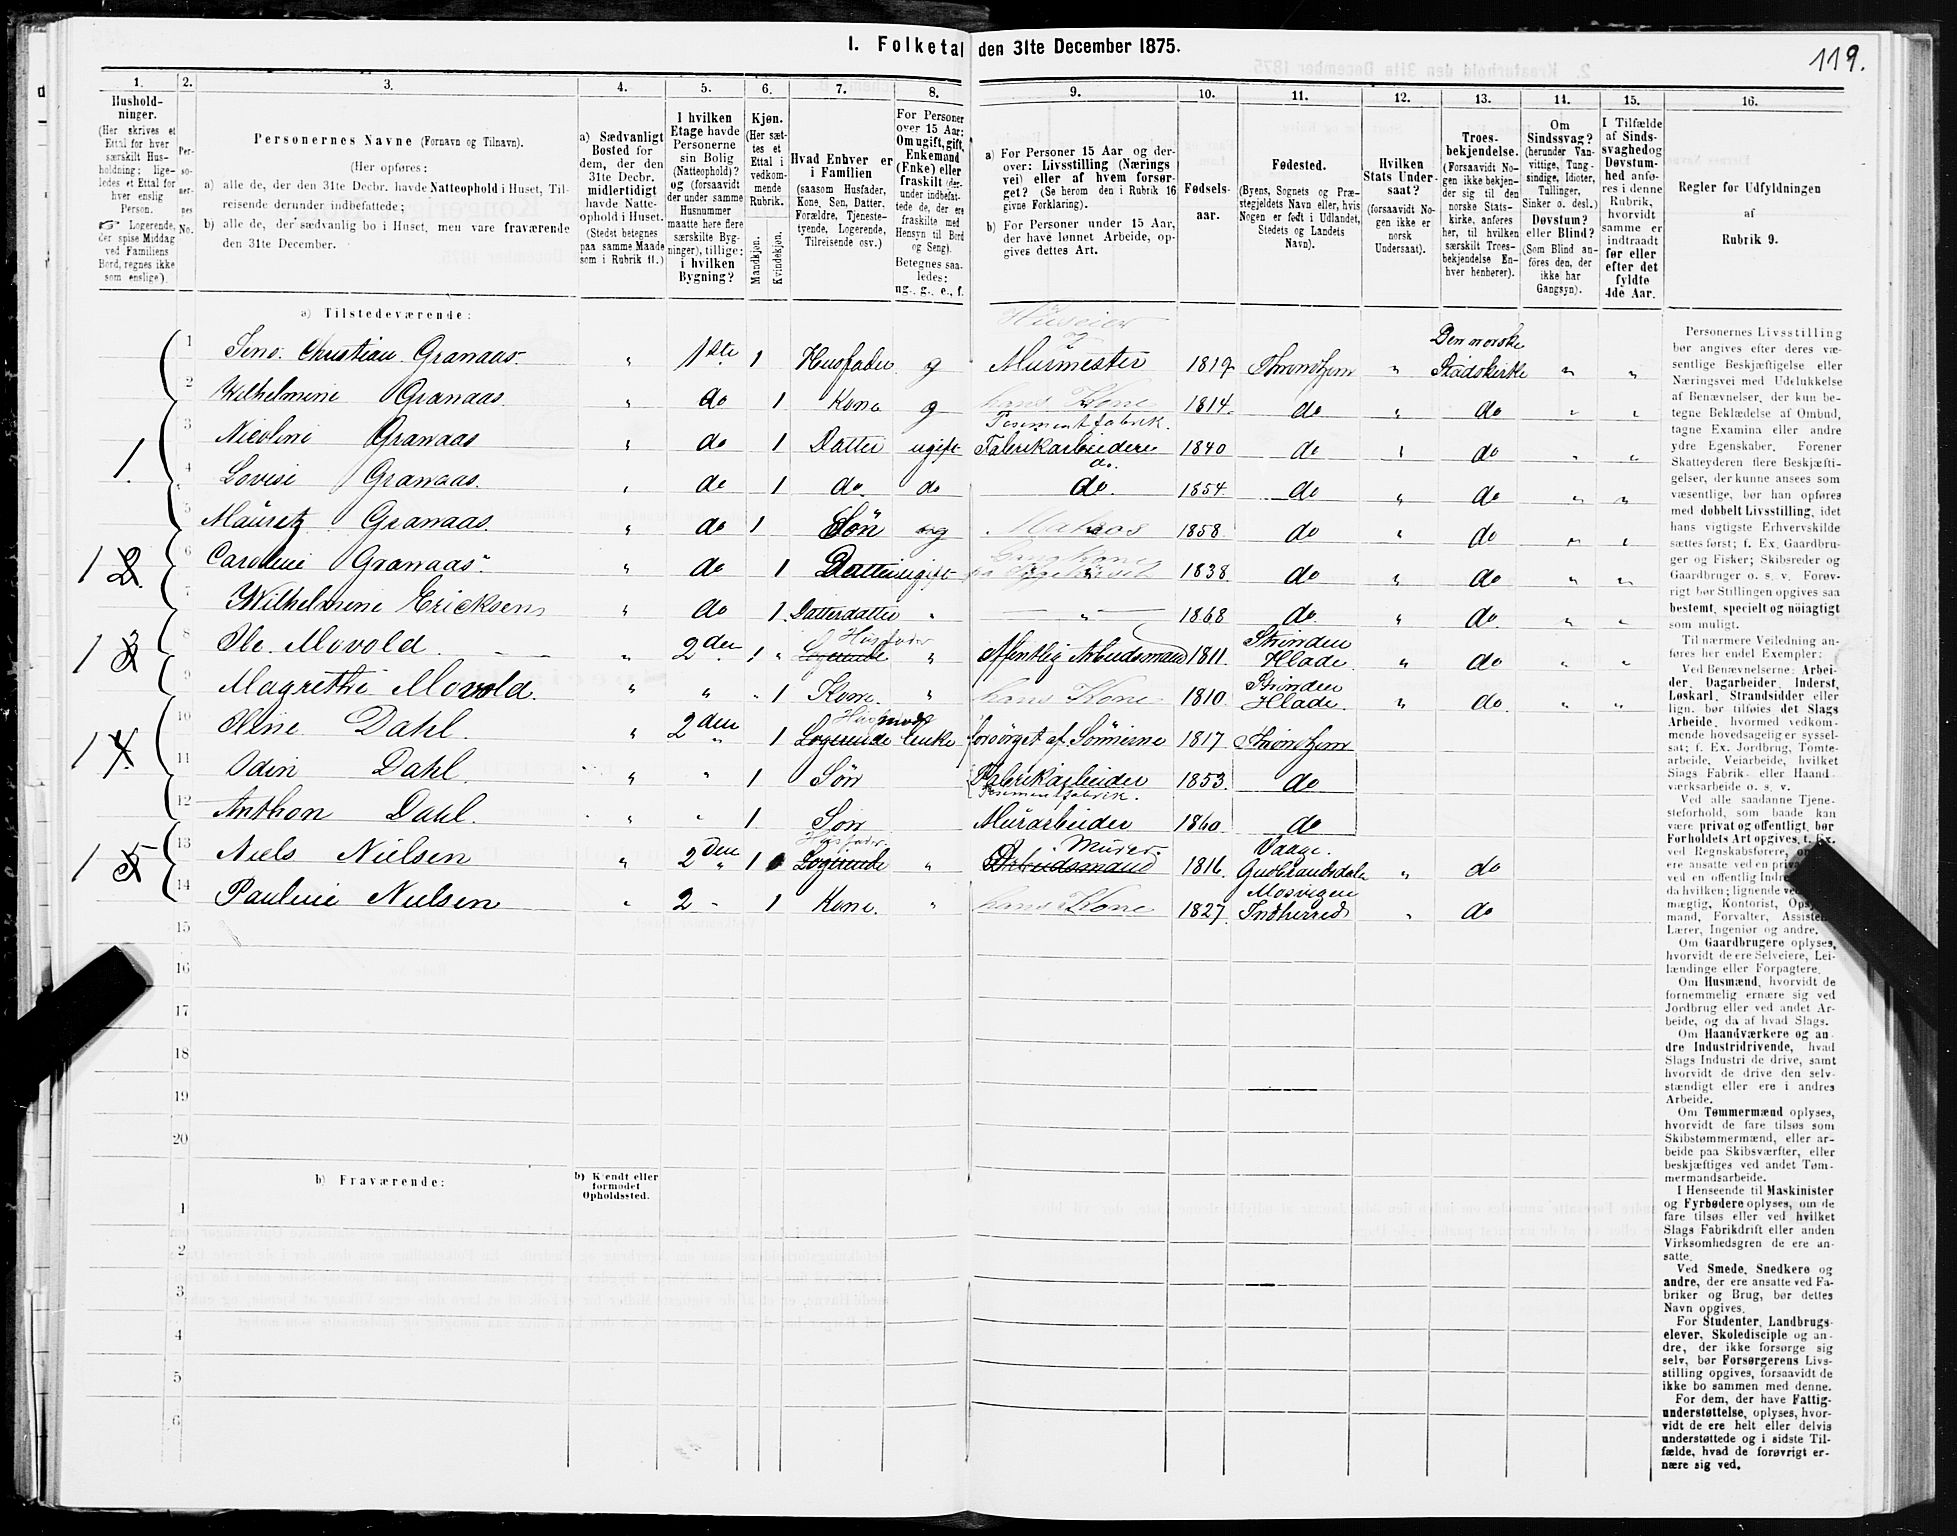 I. Folketal den 31te December 1875.
119.
1.
Hushold-
ninger.
(Her skrives et
Ettal for hver
særskilt Hus-
holdning; lige-
ledes et Ettal for
hver enslig
Person.
☞ Logerende,
der spise Middag
ved Familiens
Bord, regnes ikke
som enslige).
2.
Per-
so-
ner-
nes
No.
3.
Personernes Navne (Fornavn og Tilnavn).
(Her opføres:
a) alle de, der den 31te Decbr. havde Natteophold i Huset, Til-
reisende derunder indbefattede;
b) alle de, der sædvanlig bo i Huset, men vare fraværende
den 31te December.
4.
a) Sædvanligt
Bosted for
dem, der den
31te Decbr.
midlertidigt
havde Natte-
ophold i Huset.
(Stedet betegnes
paa samme Maade
som i Rubrik 11.)
5.
I hvilken
Etage havde
Personerne
sin Bolig
(Natteophold)?
og (forsaavidt
der under samme
Husnummer
maatte høre flere
særskilte Byg-
ninger), tillige:
i hvilken
Bygning?
6.
Kjøn.
(Her sæt-
tes et
Ettal i
vedkom-
mende
Rubrik.
Mandkjøn.
Kvindekjøn.
7.
Hvad Enhver er
i Familien
(saasom Husfader,
Kone, Søn, Datter,
Forældre, Tjeneste-
tyende, Logerende,
Tilreisende osv.)
8.
For Personer
over 15 Aar:
Om ugift, gift,
Enkemand
(Enke) eller
fraskilt (der-
under indbefat-
tede de, der ere
fraskilte med
Hensyn til Bord
og Seng).
Betegnes saa-
ledes:
ug., g., e., f.
9.
a) For Personer 15 Aar og der-
over: Livsstilling (Nærings
vei) eller af hvem forsør-
get? (Se herom den i Rubrik 16
givne Forklaring).
b) For Personer under 15 Aar,
der have lønnet Arbeide, op-
gives dettes Art.
10.
Fødsels-
aar.
11.
Fødested.
(Byens, Sognets og Præ-
stegjeldets Navn eller, hvis
Nogen er født i Udlandet,
Stedets og Landets
Navn).
12.
Hvilken
Stats Under-
saat?
(forsaavidt No-
gen ikke er
norsk
Undersaat).
13.
Troes-
bekjendelse.
(Forsaavidt No-
gen ikke bekjen-
der sig til den
norske Stats-
kirke, anføres
her, til hvilken
særskilt Troes-
bekjendelse En-
hver henhører).
14.
Om
Sindssvag?
(herunder Van-
vittige, Tung-
sindige, Idioter,
Tullinger,
Sinker o. desl.)
Døvstum?
eller Blind?
(Som Blind an-
føres den, der
ikke har
Gangsyn).
15.
I Tilfælde
af Sinds-
svaghed og
Døvstum-
hed anfø-
res i denne
Rubrik,
hvorvidt
samme er
indtraadt
før eller
efter det
fyldte
4de Aar.
16.
Regler for Udfyldningen
af
Rubrik 9.
a) Tilstedeværende:
1 Jens Christian Granaas " 1ste 1 Husfader g Huseier og Murmester 1819 Throndhjem " Den norske Stadskirke " "
2 Wilhelmine Granaas " do 1 Kone g hans Kone 1814 do " do " "
1. 3 Nicoline Granaas " do 1 Datter ugift Fabrikarbeidere 1840 do " do " "
4 Lovise Granaas " do 1 do do do 1854 do " do " "
5 Mauretz Granaas " do 1 Søn ug 1858 do " do " "
1 2. 6 Caroline Granaas " do 1 Datter ugift 1838 do " do " "
7 Wilhelmine Ericksen " do 1 Datterdatter " " 1868 do " do " "
1 3 8 Ole Movold " 2den 1 Husfader Logerende " offenklig Arbeidsmand 1811 Strinden Hlade " do " "
9 Magrethe Movold " " 1 Kone " hans Kone 1810 Strinden Hlade " do " "
1 4. 10 Oline Dahl " 2den 1 Husmoder Logerende Enke forsørget af Sønnerne 1817 Throndhjem
11 Odin Dahl " " 1 Søn Fabrikarbeider 1853 do
12 Anthon Dahl " " 1 Søn Murarbeider 1860 do
1 5 13 Niels Nielsen " 2den 1 Husfader Logerende " Murer Arbeidsmand 1816 Vaage Gudbrandsdalen " do
14 Pauline Nielsen " 2 " 1 Kone " hans Kone 1827 Mosvigen Indherred " do
15
16
17
18
19
20
b) Fraværende:
b) Kjendt eller
formodet
Opholdssted.
1
2
3
4
5
6
Personernes Livsstilling
bør angives efter deres væ-
sentlige Beskjæftigelse eller
Næringsvei med Udelukkelse
af Benævnelser, der kun be-
tegne Beklædelse af Ombud,
tagne Examina eller andre
ydre Egenskaber. Forener
Skatteyderen flere Beskjæfti-
gelser, der kunne ansees som
væsentlige, bør han opføres
med dobbelt Livsstilling, idet
hans vigtigste Erhvervskilde
sættes først; f. Ex. Gaardbru-
ger og Fisker; Skibsreder og
Gaardbruger o. s. v. Forøv-
rigt bør Stillingen opgives saa
bestemt, specielt og nøiagtigt
som muligt.
Til nærmere Veiledning an-
føres her endel Exempler:
Ved Benævnelserne: Arbei-
der, Dagarbeider, Inderst,
Løskarl, Strandsidder eller
lign. bør tilføies det Slags
Arbeide, hvormed vedkom-
mende hovedsagelig er syssel-
sat; f. Ex. Jordbrug, Tomte-
arbeide, Veiarbeide, hvilket
Slags Fabrik- eller Haand-
værksarbeide o. s. v.
Ved alle saadanne Tjene-
steforhold, som baade kan
være privat og offentligt, bør
Forholdets Art opgives, f. Ex.
ved Regnskabsførere,
ere ansatte ved en
ved en offentlig
da hvilken; lignende
mægtig, Kontorist,
mand, Forvalter,
Lærer, Ingeniør og andre.
Om Gaardbrugere oplyses,
hvorvidt de ere Selveiere, Lei-
lændinge eller Forpagtere.
Om Husmænd, hvorvidt de
fornemmelig ernære sig ved
Jordbrug eller ved andet Ar-
beide, og da af hvad Slags.
Om Haandværkere og an-
dre Industridrivende, hvad
Slags Industri de drive, samt
hvorvidt de drive den selv-
stændigt eller ere i andres
Arbeide.
Om Tømmermænd oplyses,
hvorvidt de fare tilsøs som
Skibstømmermænd, eller ar-
beide paa Skibsværfter, eller
beskjæftiges ved andet Tøm-
mermandsarbeide.
I Henseende til Maskinister
og Fyrbødere oplyses, om de
fare tilsøs eller ved hvilket
Slags Fabrikdrift eller anden
Virksomhedsgren de ere an-
satte.
Ved Smede, Snedkere og
andre, der ere ansatte ved Fa-
briker og Brug, bør dettes
Navn opgives.
For Studenter, Landbrugs-
elever, Skoledisciple og an-
dre, der ikke forsørge sig
selv, bør Forsørgerens Livs-
stilling opgives, forsaavidt de
ikke bo sammen med denne.
For dem, der have Fattig-
understøttelse, oplyses, hvor-
vidt de ere helt eller delvis
understøttede og i sidste Til-
fælde, hvad de forøvrigt er-
nære sig ved.